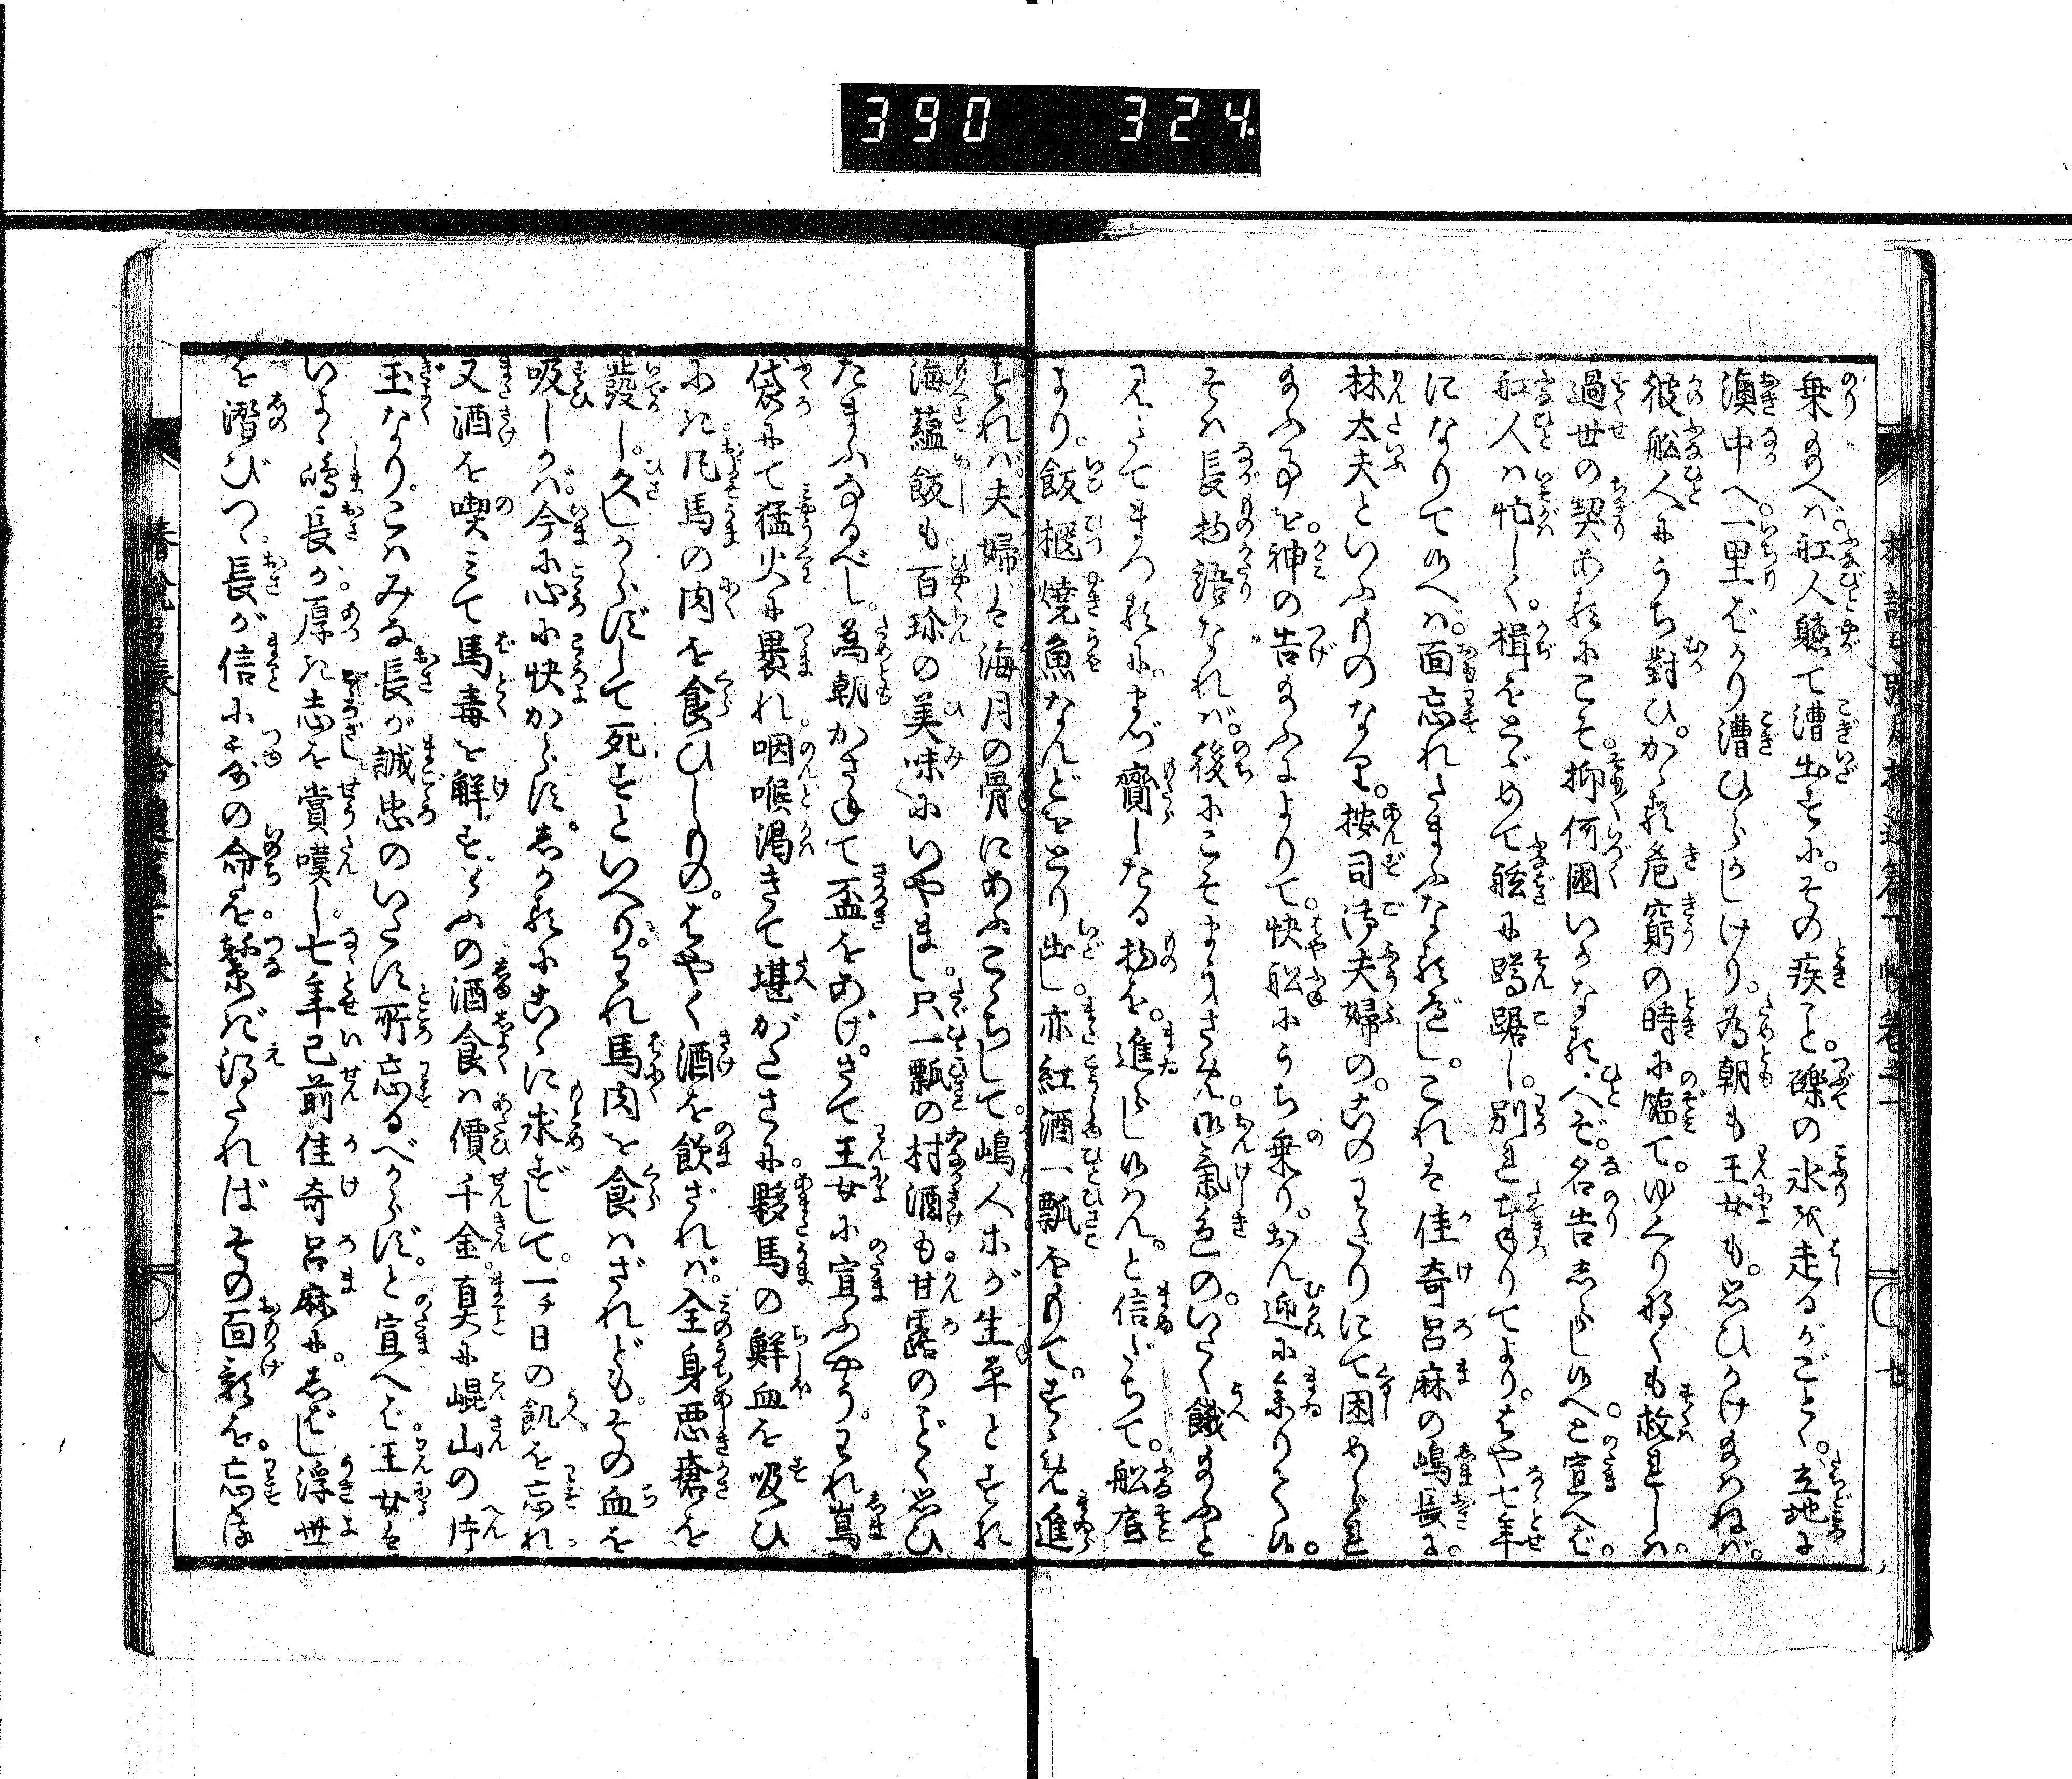 390 324.
乗給へバ。舩人軈て漕出すに。その疾こと。礫の氷を走るがごとく。立地に
澳中へ。一里ばかり漕ひらかしけり。為朝も王女も。思ひかけ給はねバ。
彼舩人にうち對ひ。かゝる危窮の時に臨て。ゆくりなくも救れしハ。
過世の契あるにこそ。抑何國いかなる人ぞ。名告しらし給へと宣へば。
舩人ハ忙しく。楫をとゞめて舷に蹲踞し。別れまゐりてより。はや七年
になりて候へバ。面忘れたまふなるべし。これは佳奇呂麻の嶋長に。
林太夫といふものなり。按司御夫婦の。このわたりにて困められ
給ふ事を。神の告給ふによりて。快舩にうち乗り。おん迎に参りて候。
そハ長物語なれバ。後にこそまうさめ。御氣色の。いたく餓給ふと
見えてまつるに。まづ齎したる物を。進らし候はん。と信だちて。舩底
より。飯櫃焼魚なんどをとり出し。亦紅酒一瓢をもて。すゝめ進
すれバ夫婦は海月の骨にあふこゝちして。嶋人等が生平とすれ
海蘊飯も百珍の美味にいやまし。只一瓢の村酒も甘露のごとく思ひ
たまふなるべし。為朝かさねて盃をあげ。さて王女に宣ふやう。われ嶌
袋にて猛火に褁れ。咽喉渇きて堪がたさに。夥馬の鮮血を吸ひ
にき。凡馬の肉を食ひしもの。はやく酒を飲ざれバ。全身悪瘡を
發し。久しからずして死すといへり。われ馬肉を食ハざれども。その血を
吸しかバ。今に心に快からず。しかるにこゝに求ずして。一チ日の飢を忘れ。
又酒を喫みて馬毒を觧す。らふの酒食ハ價千金。真に崐山の片
玉なり。こハみな長が誠忠のいたす所。忘るべからず。と宣へば王女は
いよゝ嶋長が。厚き志を賞嘆し。七年已前佳奇呂麻に。しばし浮世
を潜びつゝ。長が信に露の命を。繋ぎ得たればその面影を。忘る